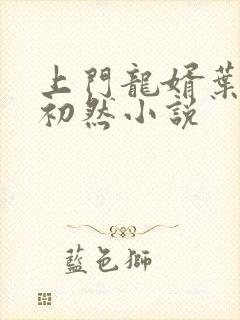 上門龍婿葉
初然小說
藍色獅